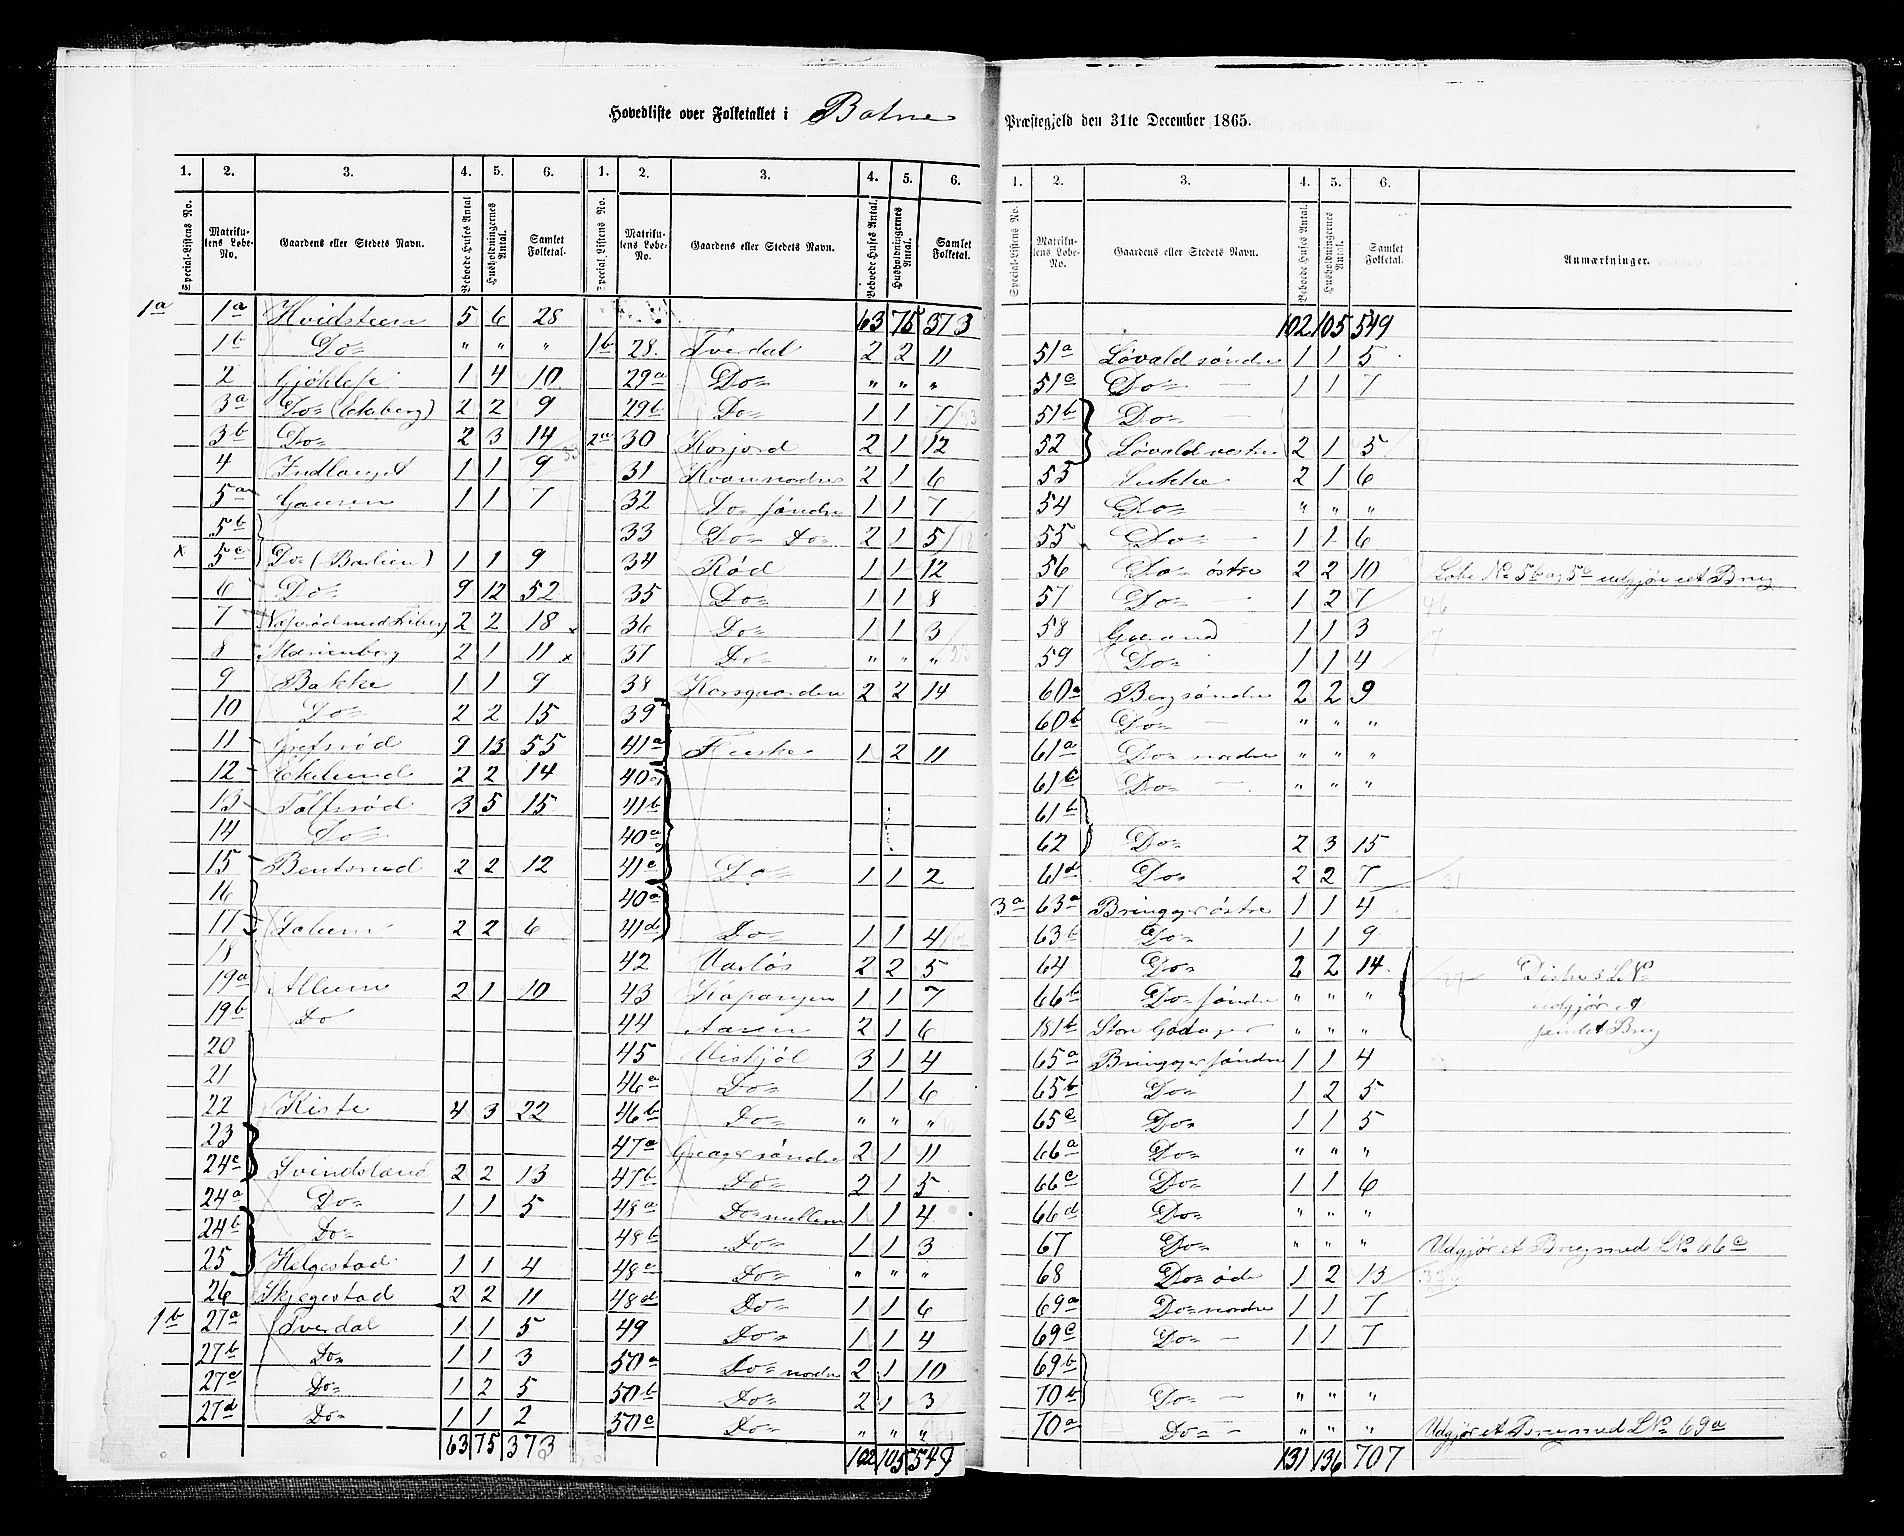 Hovedliste over Folketallet i Botne Præstegjeld den 31te December 1865.
1. 2. 3. 4. 5. 6. 1. 2. 3. 4. 5. 6.
Special-Listens No. Matrikulens Løbe-No. Gaardens eller Stedets Navn. Beboede Huses Antal Husholdningernes Antal. Samlet Folketal. Special Listens No. Matrikulens Løbe-No. Gaardens eller Stedets Navn. Beboede Huses Antal. Husholdningernes Antal. Samlet Folketal.
1a 1a Hvidsteen 5 6 28
1b Do= " " "
2 Gjøklep 1 4 10
3a Do= (Ekeberg) 2 2 9
3b Do= 2 3 14
4 Indlauget 1 1 9
5a Gausen 1 1 7
5b
x 5c Do= (Barlien) 1 1 9
6 Do= 9 12 52
7 2 2 18
8 Marienborg 2 1 11
9 Bakke 1 1 9
10 Do= 2 2 15
11 Grefsrød 9 13 55
12 Ekelund 2 2 14
13 Tolfsrød 3 5 15
14 Do=
15 Bentsrud 2 2 12
16
17 Solum 2 2 6
18
19a Allum 2 1 10
19b Do
20
21
22 Kiste 4 3 22
23
24c Svindsland 2 2 13
24a Do= 1 1 5
24b Do=
25 Helgestad 1 1 4
26 Skjegestad 2 2 11
1b 27a Tverdal 1 1 5
27b Do= 1 1 3
27c Do= 1 2 5
27d Do= 1 1 2
63 75 373
63 75 373
1b 28. Tverdal 2 2 11
29a Do= " " "
29b Do= 1 1 7
2a 30 Korjord 2 1 12
31 2 1 6
32 Do= søndre 1 1 7
33 Do= Do= 2 1 5
34 Rød 1 1 12
35 Do= 1 1 8
36 Do= 1 1 3
37 Do= " " "
38 Korsgaarden 2 2 14
39
41a 1 2 11
40a
41b
40a
41c Do= 1 1 2
40a
41d Do= 1 1 4
42 2 2 5
43 Kopangen 1 1 7
44 Aasen 2 1 6
45 Viskjøl 3 1 4
46a Do= 1 1 6
46b Do= " " "
47a Greager søndre 2 1 11
47b Do= 2 1 5
48a Do= mellem 1 1 4
48b Do= 1 1 3
48c Do= " " "
48d Do= 1 1 6
49 Do= 1 1 4
50a Do= nordre 2 1 10
50b Do= 2 1 3
50c Do= " " "
102 105 549
1. 2. 3. 4. 5. 6.
Special-Listens No. Matrikulens Løbe-No. Gaardens eller Stedets Navn. Beboede Huses Antal. Husholdningernes Antal. Samlet Folketal. Anmærkninger.
102 105 549
51a Løvald søndre 1 1 5
51c Do= 1 1 7
51b Do=
52 Løvald vestre 2 1 5
53 Sukke 2 1 6
54 Do= " " "
55 Do= 1 1 6
56 Do= østre 2 2 10 Løbe No 5b og 5c udgjør et Brug
57 Do= 1 2 7 46
58 1 1 3
59 Do= 1 1 4
60a Berg søndre 2 2 9
60b Do= " " "
61a Do= nordre " " "
61c Do= " " "
61b
62 Do= 2 3 15
61d Do= 2 2 7 31
3a 63a Bringager østre 1 1 4
63b Do= 1 1 9
64 Do= 2 2 14 Disse 3 L No
66b Do= søndre " " " udgjør et
181b Store Gadager " " " samlet Brug
65a Bringager søndre 1 1 4
65b Do= 1 2 5
65c Do= 1 1 5
66a Do= " " "
66c Do= 1 1 6
66d Do= " " "
67 Do= " " " Udgjør et Brug med L No 66c
68 Do= øde 1 2 13
69a Do= nordre 1 1 7
69c Do= 1 1 7
69b
70b Do= " " "
70a Do= " " " Udgjør et Brug med L No 69a
131 136 707